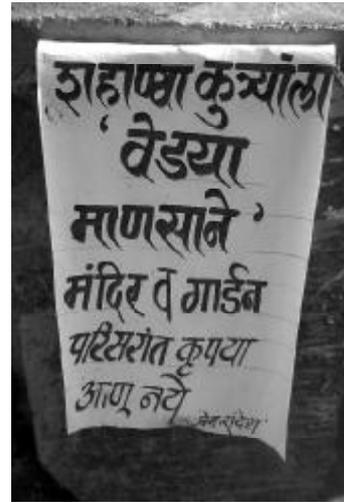 शहाण्या कुत्र्यांला
‘वेडया
माणसाने’
मंदिर व गार्डन
परिसरांत कृपया
आणू नये